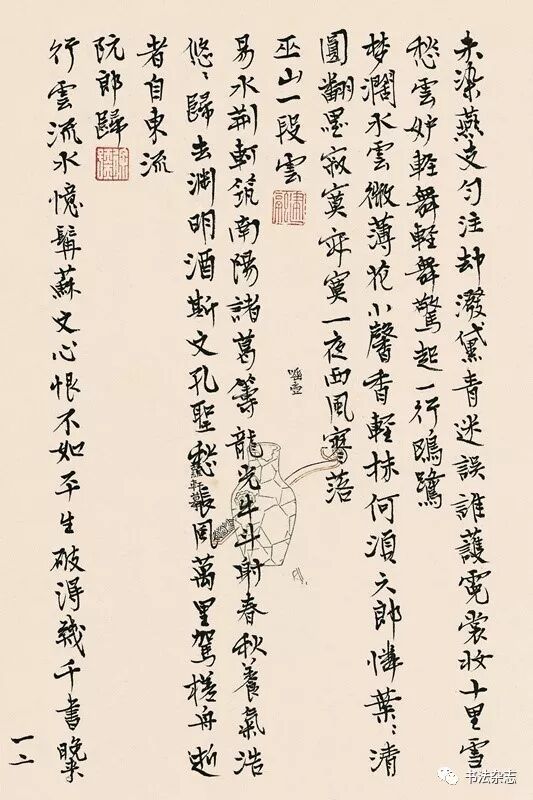 未染燕支勻注却潑黛青迷誤誰護霓裳妝十里雪
愁雲妒輕舞輕舞驚起一行鷗鷺
梦闊水雲微薄花小馨香輕抹何須六郎憐葉〻清
圓翻墨寂寞寂寞一夜西風寥落
巫山一段雲
易水荆軻筑南陽諸葛籌龍光牛斗射春秋養氣浩
悠〻歸去淵明酒斯文孔聖愁長風萬里駕槎舟逝
者自東流
阮郎歸
行雲流水憶髯蘇文心恨不如平生破得幾千書
唾壺
一二
书法杂志